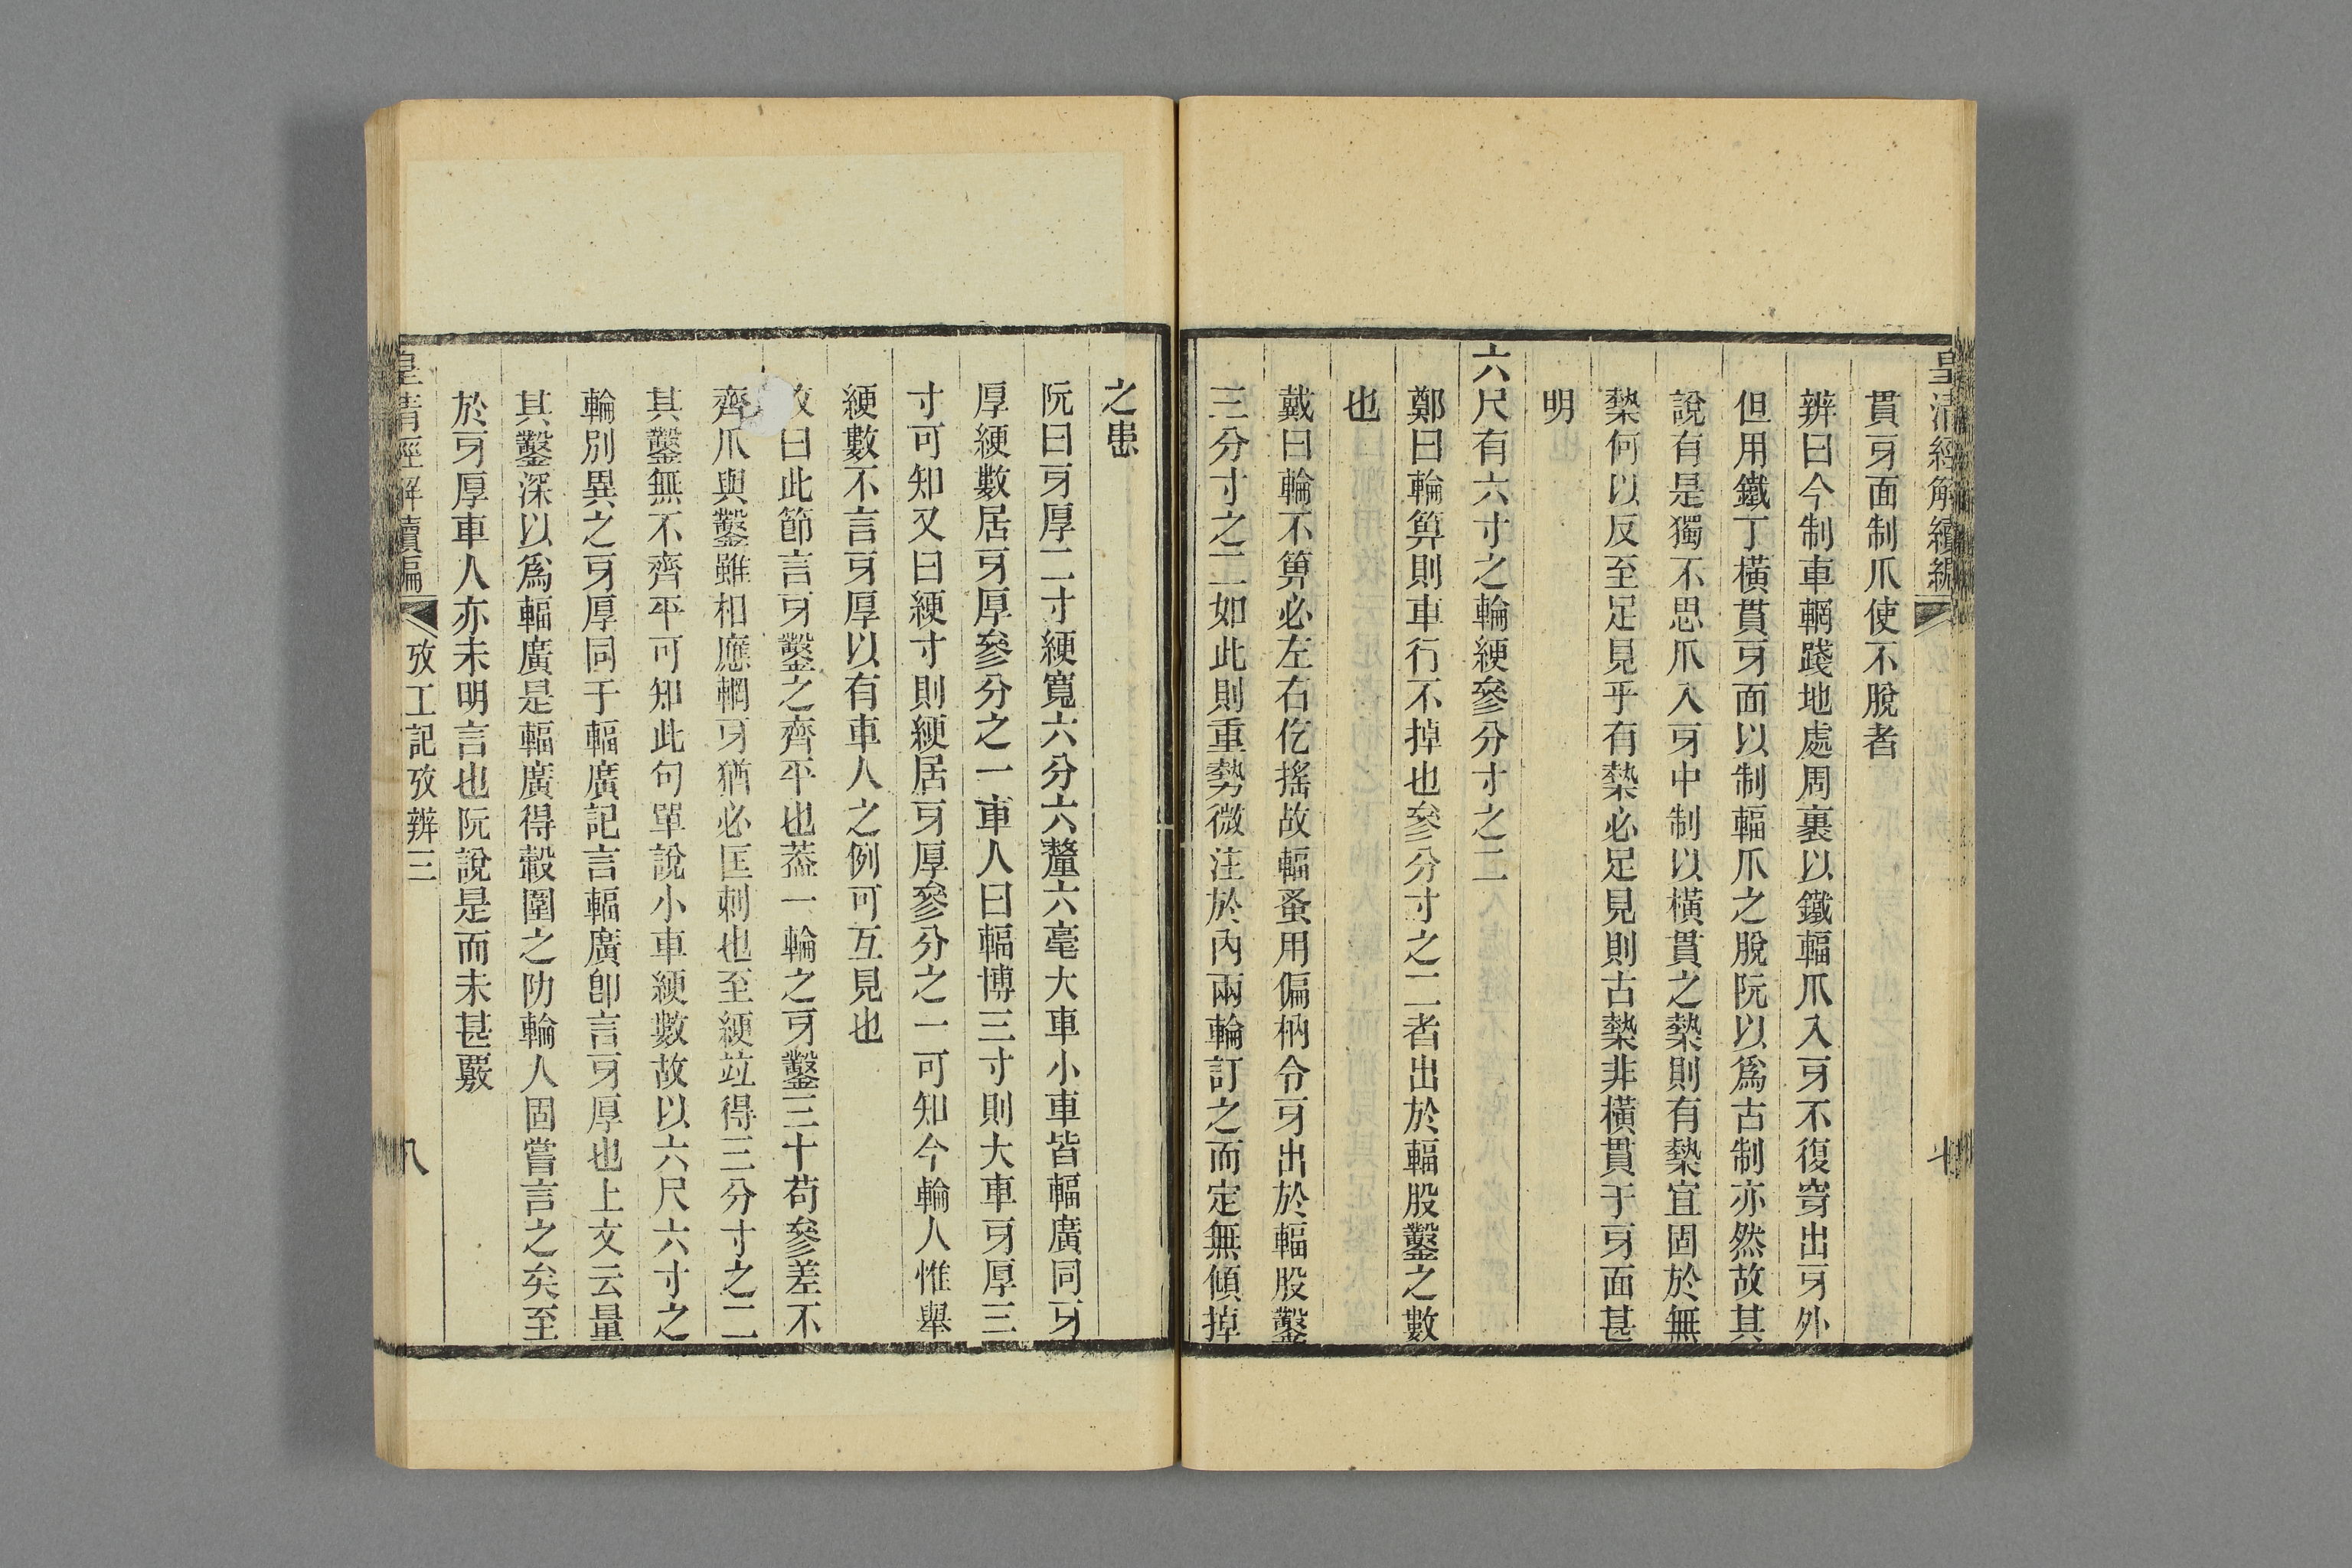 皇清經解續編
貫牙面制爪使不脫者
辨曰今制車輞踐地處周裹以鐵輻爪入牙不復穿出牙外
但用鐵丁橫貫牙面以制輻爪之脫阮以為古制亦然故其
說有是獨不思爪入牙中制以橫貫之槷則有槷宜固於無
槷何以反至足見乎有槷必足見則古槷非橫貫于牙面甚
明
六尺有六寸之輪綆參分寸之二
鄭曰輪箅則車行不掉也參分寸之二者出於輻股鑿之數
也
戴曰輪不箅必左右仡搖故輻蚤用偏枘令牙出於輻股鑿
三分寸之二如此則重勢微注於內兩輪訂之而定無傾掉
之患
阮曰牙厚二寸綆寬六分六釐六毫大車小車皆輻廣同牙
厚綆數居牙厚參分之一車人曰輻博三寸則大車牙厚三
寸可知又曰綆寸則綆居牙厚參分之一可知今輪人惟舉
綆數不言牙厚以有車人之例可互見也
攷曰此節言牙鑿之齊平也葢一輪之牙鑿三十苟參差不
齊爪與鑿雖相應輞牙猶必匡刺也至綆竝得三分寸之二
其鑿無不齊平可知此句單說小車綆數故以六尺六寸之
輪別異之牙厚同于輻廣記言輻廣卽言牙厚也上文云量
其鑿深以為輻廣是輻廣得轂圍之阞輪人固嘗言之矣至
於牙厚車人亦未明言也阮說是而未甚覈
皇清經解續編
攷工記攷辨三
八